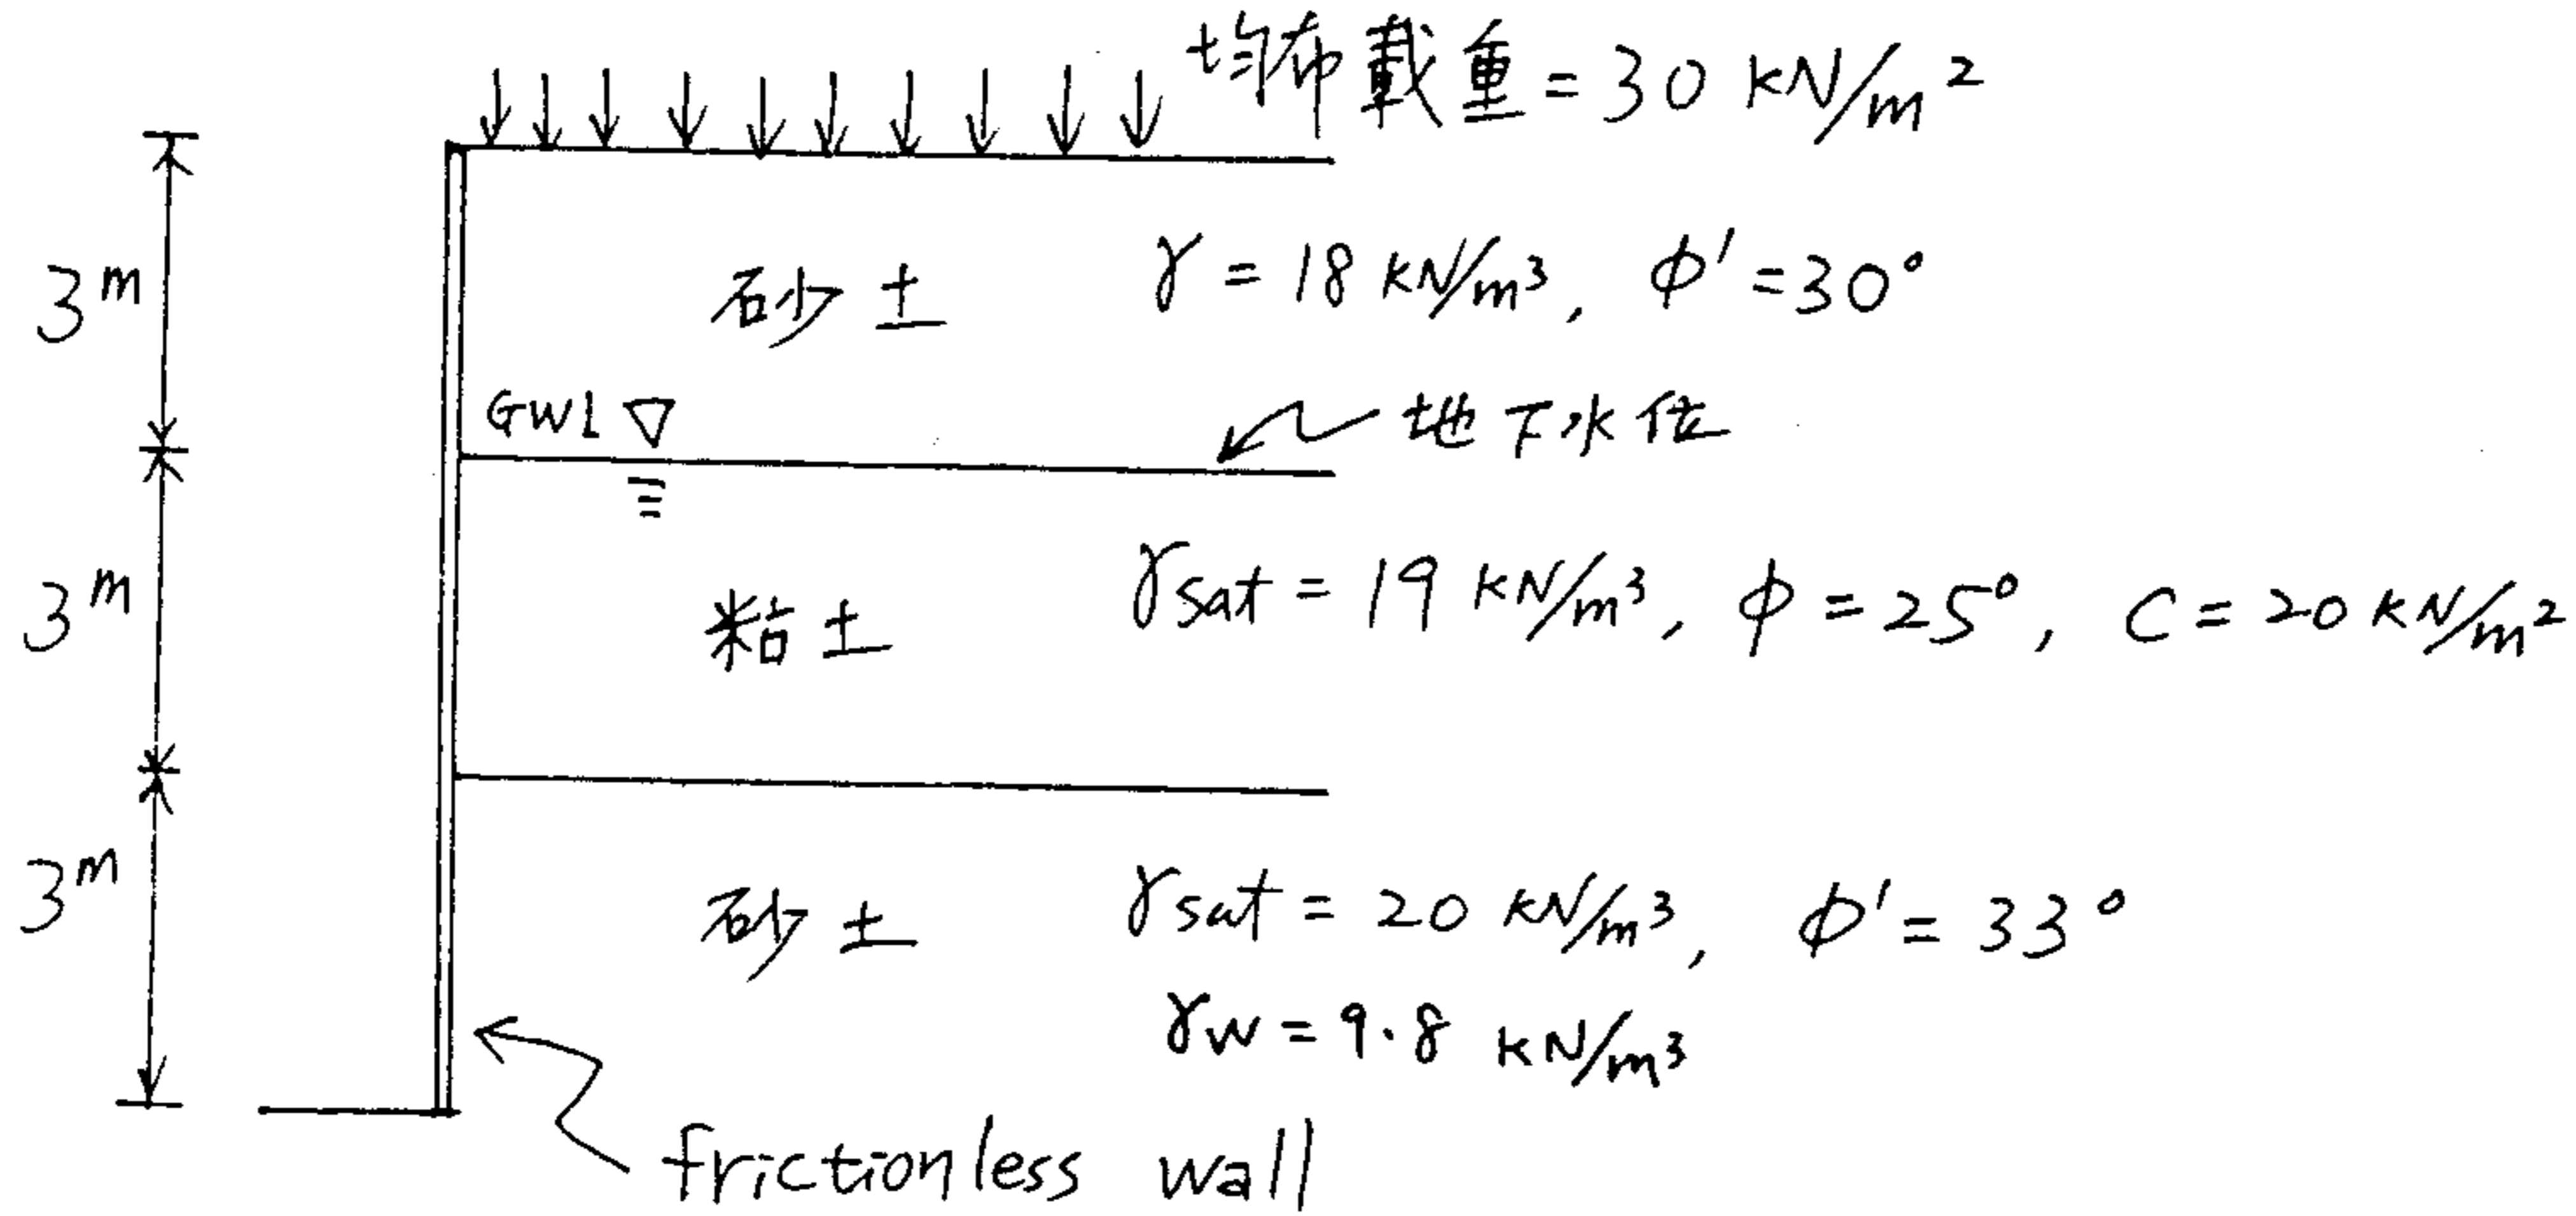 均布載重 = 30 kN/m²
3m
砂土 γ = 18 kN/m³, φ' = 30°
GWL
地下水位
3m
粘土 γsat = 19 kN/m³, φ = 25°, C = 20 kN/m²
3m
砂土 γsat = 20 kN/m³, φ' = 33°
γw = 9.8 kN/m³
frictionless wall